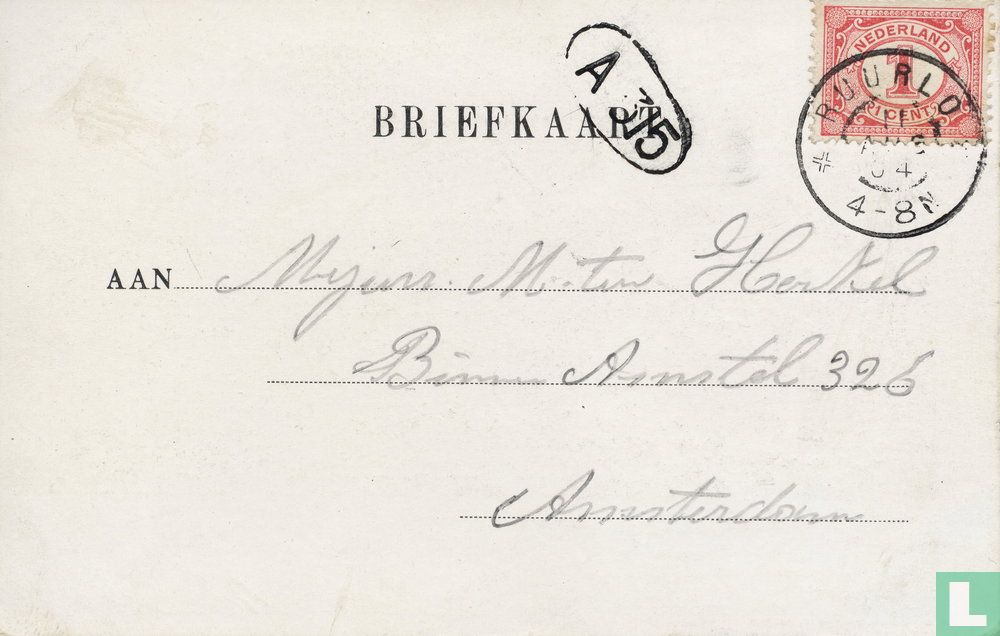 NEDERLAND
1
1 CENT
RUURLO
04
4-8N
A 315
BRIEFKAART
AAN Mejuvr. Horkel
Binnen Amstel 326
Amsterdam
L